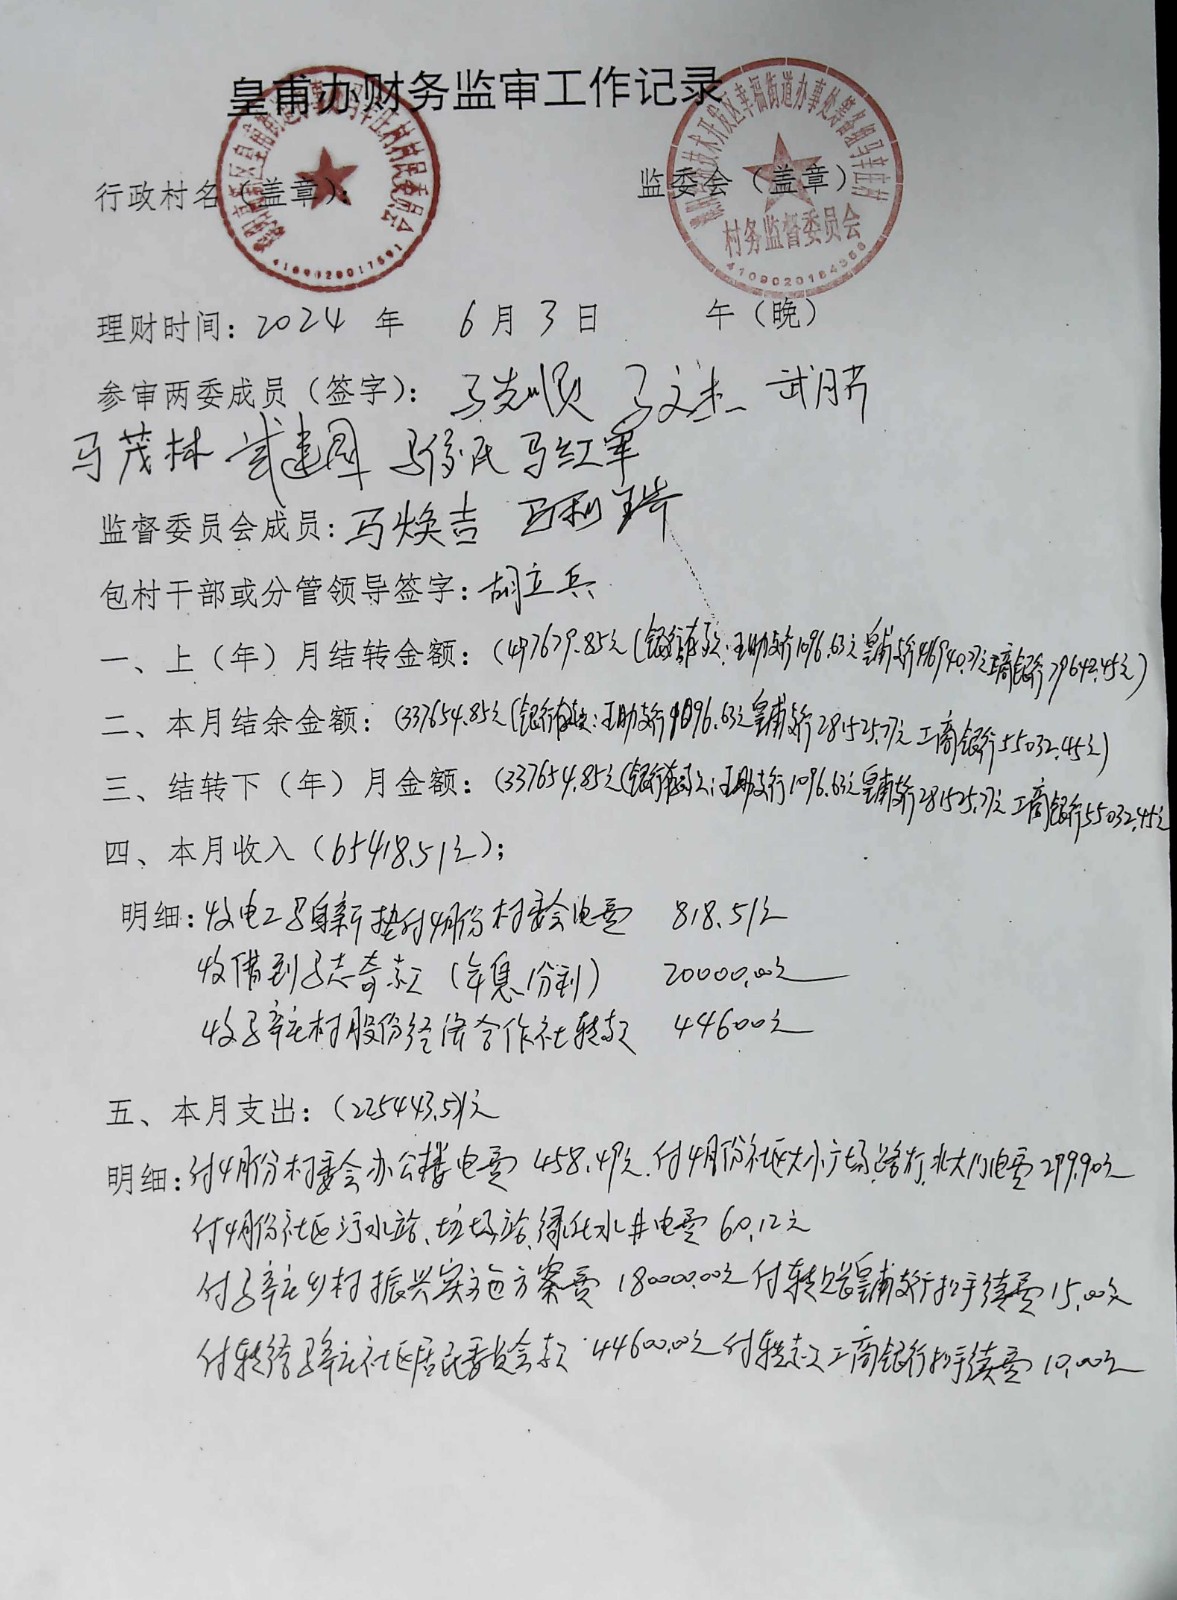 皇甫办财务监审工作记录
行政村名（盖章）：
监委会（盖章）
村务监督委员会
4109020184366
理财时间：2024 年 6 月 3 日 午（晚）
参审两委成员（签字）：马先顺 马文杰 武月芹
马茂林 武建国 马俊民 马红军
监督委员会成员：马焕吉 马利锋
包村干部或分管领导签字：胡立兵
一、上（年）月结转金额：（497679.85元（银行存款：王助支行1096.63元皇甫支行416940.77元工商银行79642.45元）
二、本月结余金额：（337654.85元（银行存款：王助支行1096.63元皇甫支行281525.77元工商银行55032.45元）
三、结转下（年）月金额：（337654.85元（银行存款：王助支行1096.63元皇甫支行281525.77元工商银行55032.45元
四、本月收入（65418.51元）；
明细：收电工马自新垫付4月份村委会电费 818.51元
收借到马志奇款（年息1分利） 20000.00元
收马辛庄村股份经济合作社转款 44600元
五、本月支出：（225443.51元
明细：付4月份村委会办公楼电费 458.49元、付4月份社区大小广场、路灯、北大门电费299.90元
付4月份社区污水站、垃圾站、绿化水井电费 60.12元
付马辛庄乡村振兴实施方案费 180000.00元 付转账皇甫支行扣手续费15.00元
付转给马辛庄社区居民委员会款 44600.00元 付转款工商银行扣手续费 10.00元